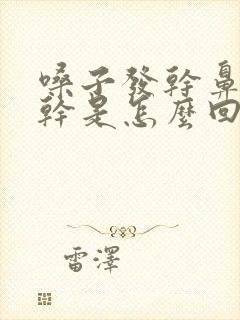 嗓子發幹鼻
幹是怎麼回
雷澤